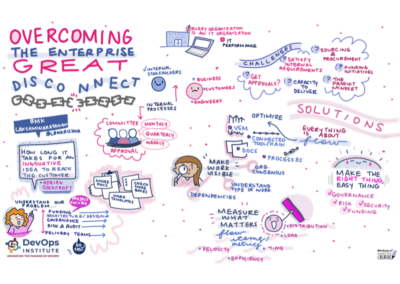 OVERCOMING
THE ENTERPRISE
GREAT
DISCONNECT
EVERY ORGANIZATION
IS AN IT ORGANIZATION
IT
PERFORMANCE
INTERNAL
STAKEHOLDERS
BUSINESS
CUSTOMERS
ENGINEERS
INTERNAL
PROCESSES
CHALLENGES
SATISFY
INTERNAL
REQUIREMENTS
SOURCING
& PROCUREMENT
FUNDING
INITIATIVES
GET
APPROVALS?
CAPACITY
TO
DELIVER
THE
PROJECT
MINDSET
SOLUTIONS
EVERYTHING
ABOUT
flow
HOW LONG IT
TAKES FOR AN
INNOVATIVE
IDEA TO REACH
THE CUSTOMER
COMMITTEE
MONTHLY
QUARTERLY
WEEKLY
APPROVAL
UNDERSTAND OUR
PROBLEM...
FUNDING
ARCHITECTURE/DESIGN
GOVERNANCE
RISK & AUDIT
DELIVERY TEAMS
OPTIMIZE
VSM
CONNECTED
TOOLCHAIN
DOCS
PROCESSES
MAKE
WORK
VISIBLE
CONSENSUS
UNDERSTAND
TYPE OF WORK
DEPENDENCIES
MEASURE
WHAT
MATTERS
flow
metrics
VELOCITY
EFFICIENCY
TIME
LOAD
DISTRIBUTION
MAKE THE
RIGHT THING,
EASY THING
GOVERNANCE
RISK
SECURITY
FUNDING
DevOps
INSTITUTE